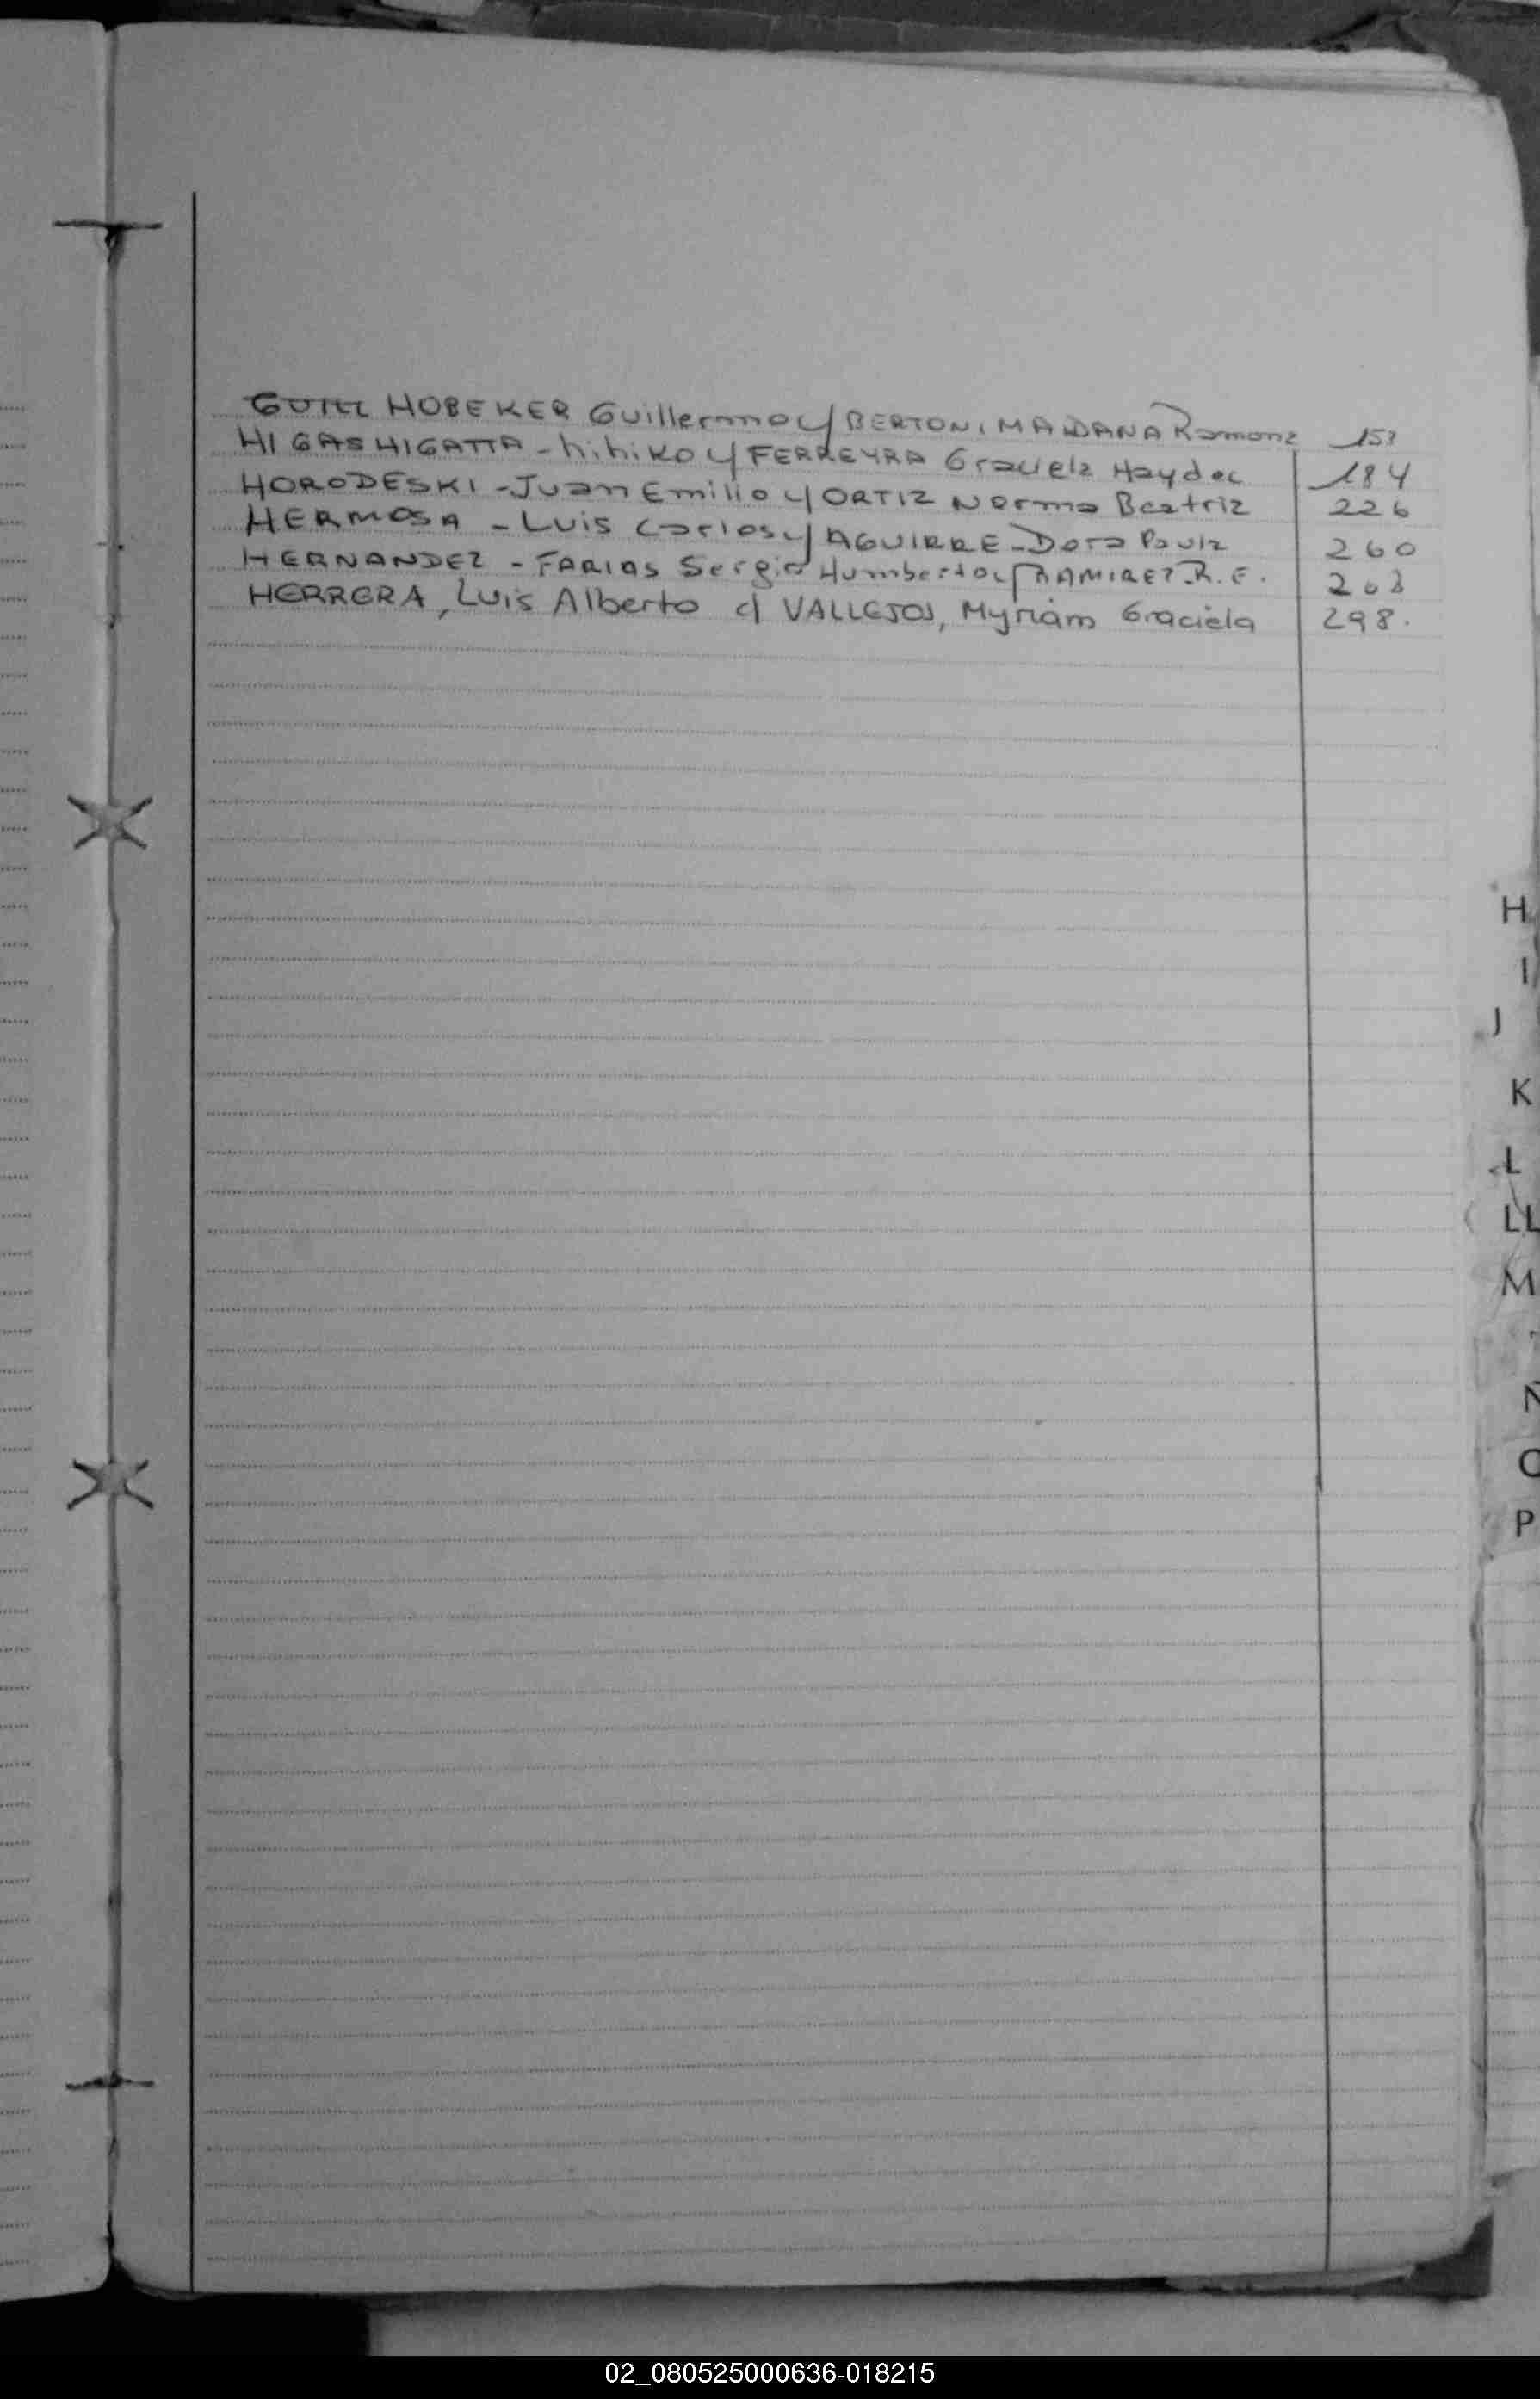 GUILL HOBEKER Guillermo c/ BERTONI MAIDANA Ramona 153
HIGASHIGATTA - hihiko c/ FERREYRA Graciela Haydee 184
HORODESKI - Juan Emilio c/ ORTIZ Norma Beatriz 226
HERMOSA - Luis Carlos c/ AGUIRRE - Dora Paula 260
HERNANDEZ - FARIAS Sergio Humberto c/ RAMIREZ R. E.
HERRERA, Luis Alberto c/ VALLEJOS, Myriam Graciela 298.
H
I
J
K
L
LL
M
Ñ
O
P
02_080525000636-018215